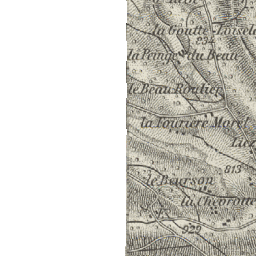 la Goutte Loisel
234
la Feinge du Beau
le Beau Roulier
la Fourrière Morel
Lie
813
le Bourson
la Chevrotte
929